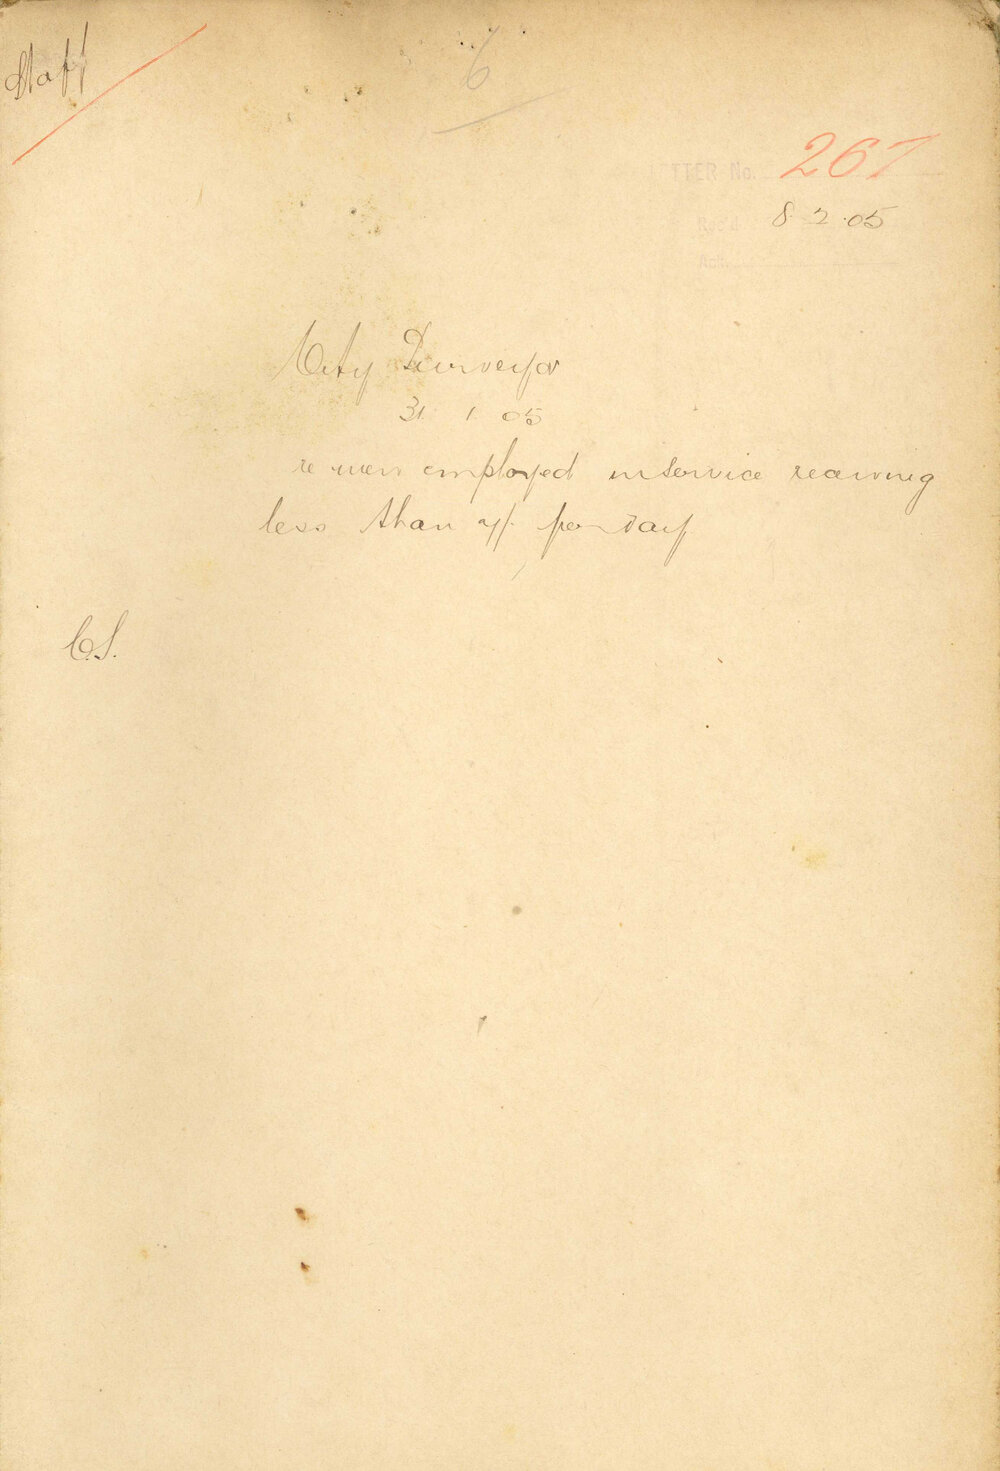 Staff
6
LETTER No. 267
Rec'd 8 2 05
Ack.
City Surveyor
31 1 05
re men employed in service receiving
less than 7/- per day
C.S.